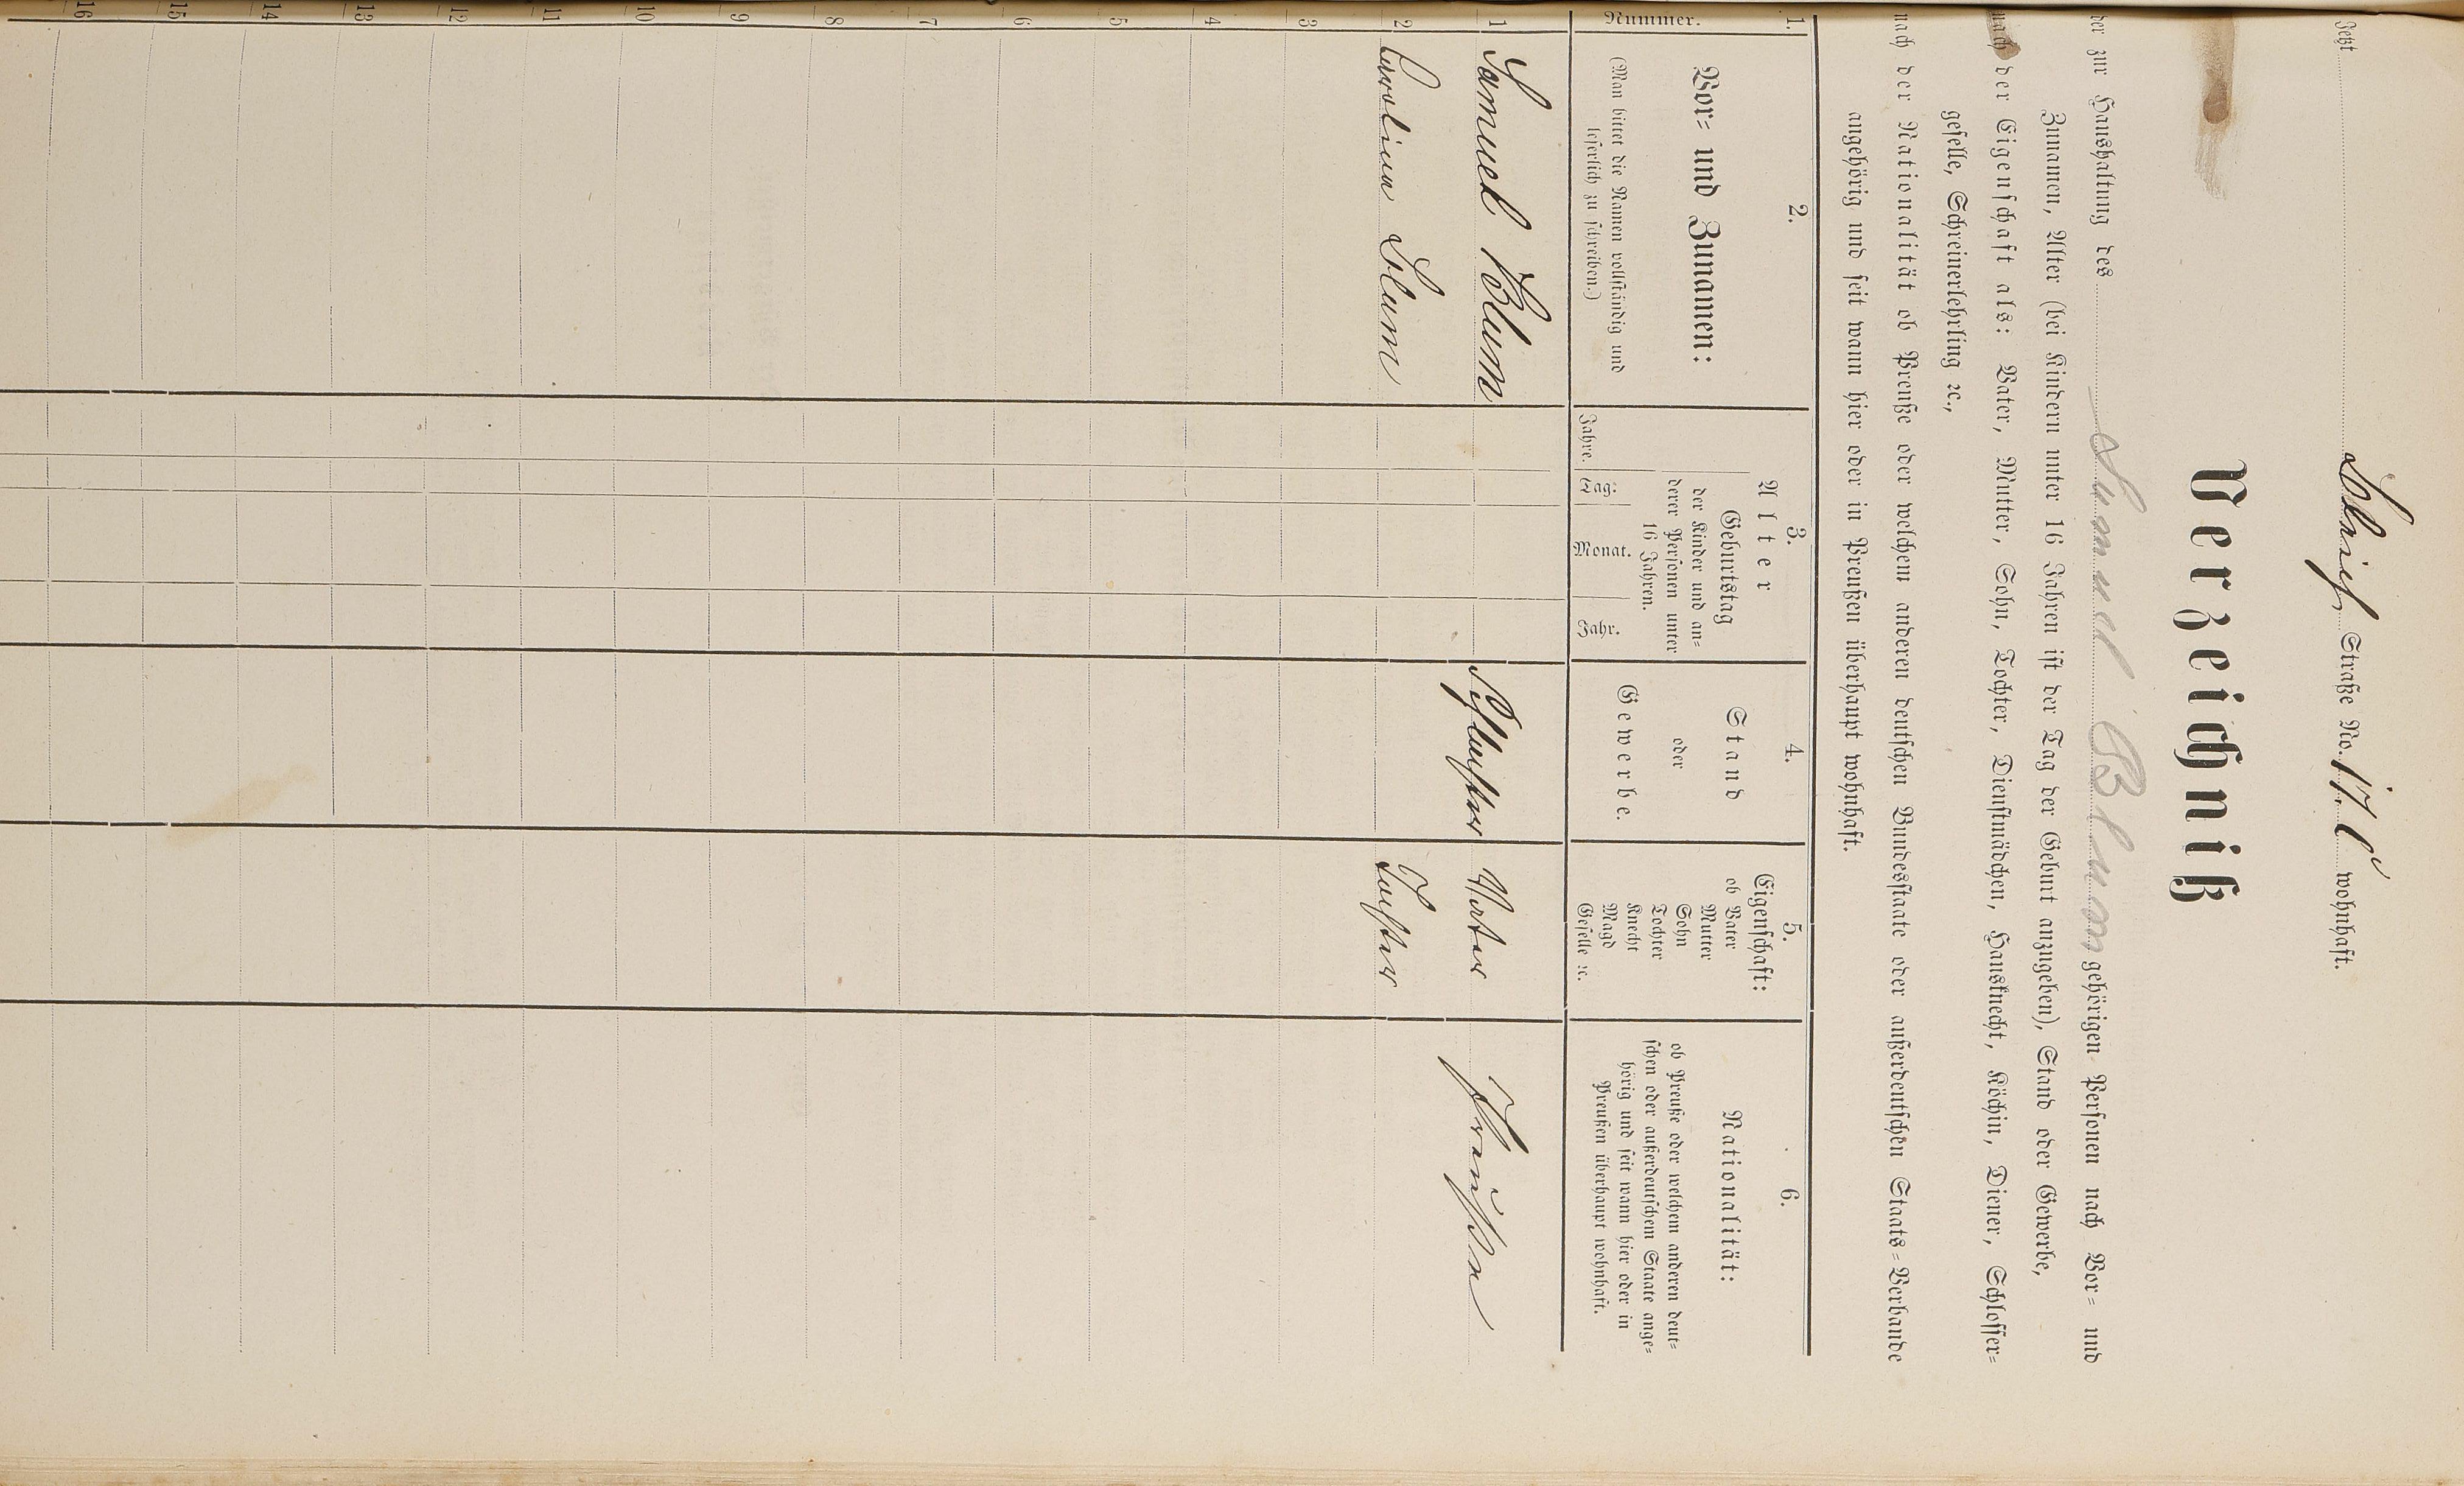 Jetzt Straße No. 17 C wohnhaft.
Verzeichniß
der zur Haushaltung des Samuel Blum gehörigen Personen nach Vor- und
Zunamen, Alter (bei Kindern unter 16 Jahren ist der Tag der Geburt anzugeben), Stand oder Gewerbe,
nach der Eigenschaft als: Vater, Mutter, Sohn, Tochter, Dienstmädchen, Hausknecht, Köchin, Diener, Schlosser-
geselle, Schreinerlehrling ꝛc.,
nach der Nationalität ob Preuße oder welchem anderen deutschen Bundesstaate oder außerdeutschen Staats-Verbande
angehörig und seit wann hier oder in Preußen überhaupt wohnhaft.
1. 2. 3. 4. 5. 6.
Nummer.
Vor- und Zunamen:
(Man bittet die Namen vollständig und
leserlich zu schreiben.)
Alter
Geburtstag
der Kinder und an-
derer Personen unter
16 Jahren.
Jahre. Tag: Monat. Jahr.
Stand
oder
Gewerbe.
Eigenschaft:
ob Vater
Mutter
Sohn
Tochter
Knecht
Magd
Geselle ꝛc.
Nationalität:
ob Preuße oder welchem anderen deut-
schen oder außerdeutschem Staate ange-
hörig und seit wann hier oder in
Preußen überhaupt wohnhaft.
1 Samuel Blum Schuster Vater Preußen
2 Carolina Blum Tochter
3
4
5
6
7
8
9
10
11
12
13
14
15
16